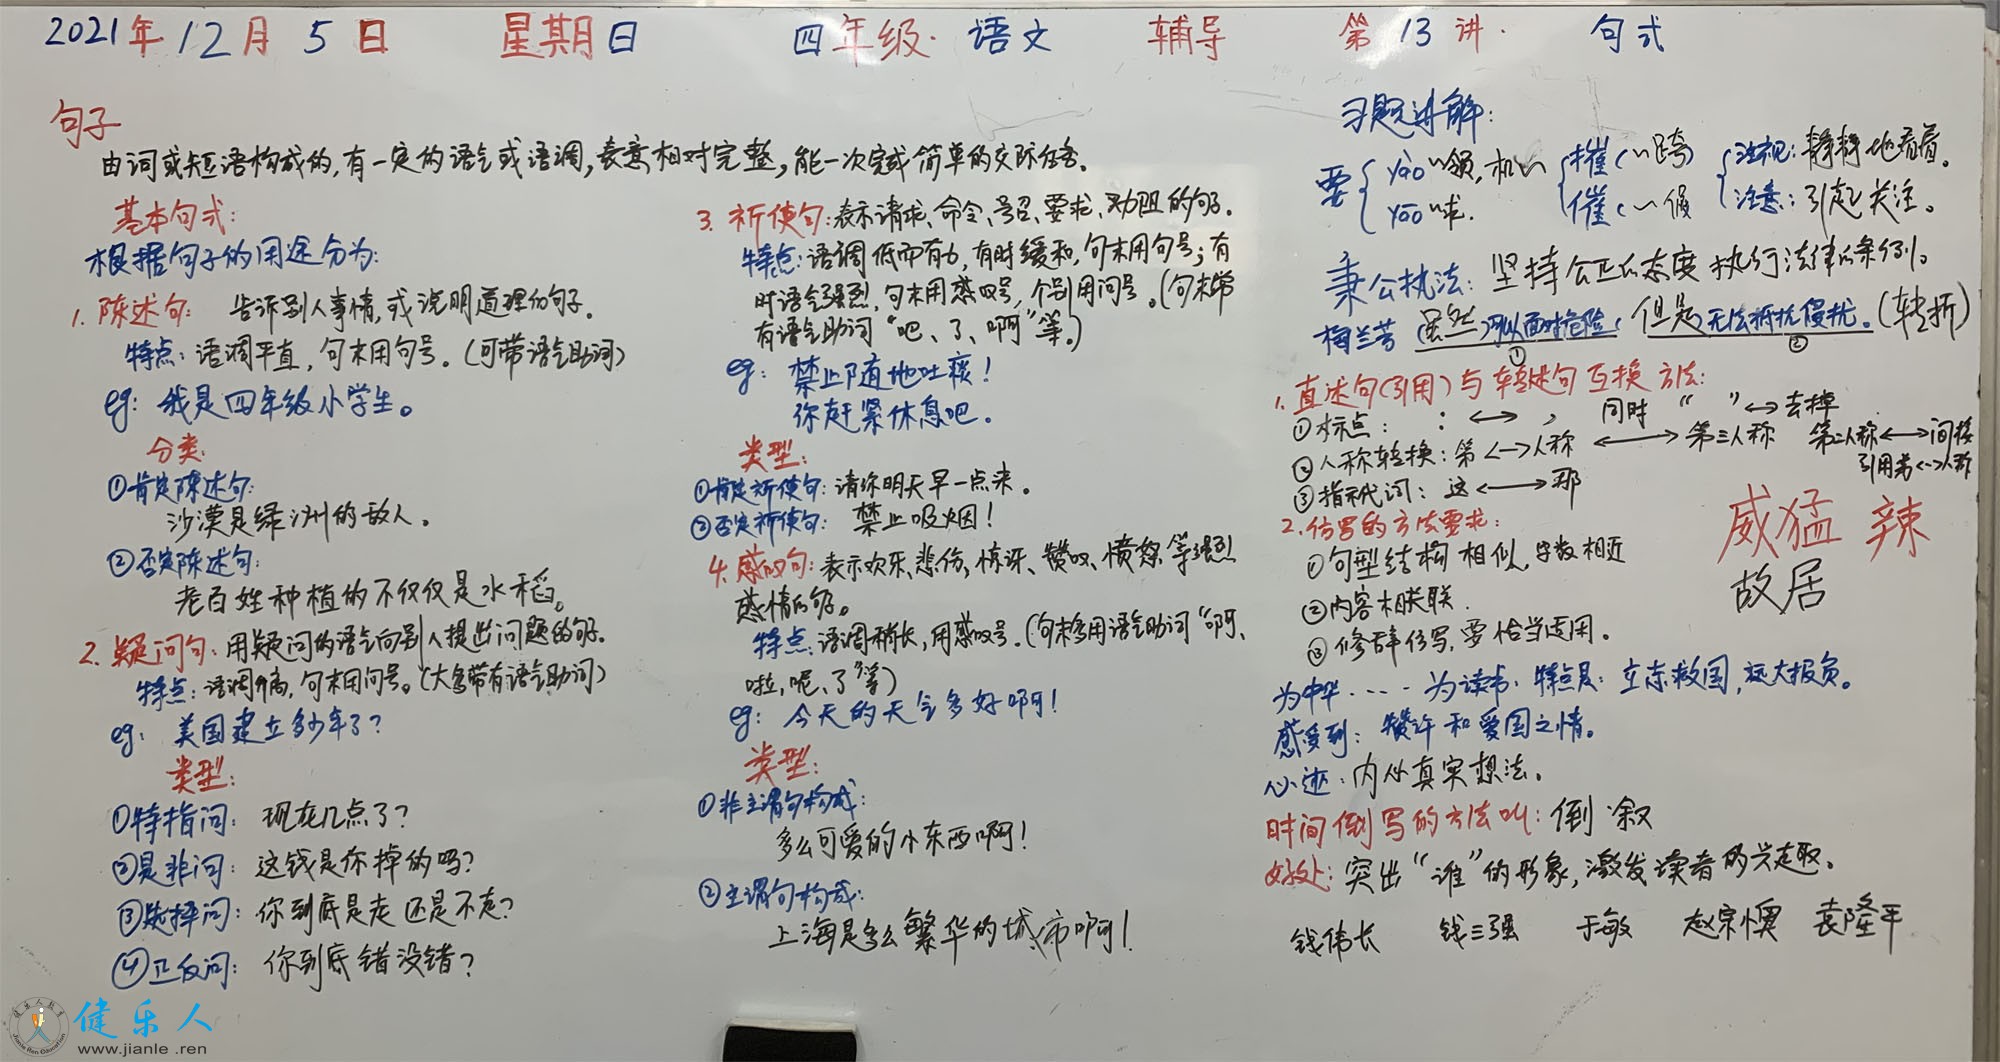 2021年12月5日 星期日 四年级·语文 辅导 第13讲· 句式
句子
由词或短语构成的,有一定的语气或语调,表意相对完整,能一次完成简单的交际任务。
基本句式:
根据句子的用途分为:
1. 陈述句: 告诉别人事情,或说明道理的句子。
特点:语调平直,句末用句号。(可带语气助词)
eg: 我是四年级小学生。
分类:
①肯定陈述句:
沙漠是绿洲的敌人。
②否定陈述句:
老百姓种植的不仅仅是水稻。
2. 疑问句:用疑问的语气向别人提出问题的句子.
特点:语调升高,句末用问号。(大多带有语气助词)
eg: 美国建立多少年了?
类型:
①特指问: 现在几点了?
②是非问: 这钱是你掉的吗?
③选择问: 你到底是走还是不走?
④正反问: 你到底错没错?
3. 祈使句:表示请求、命令、号召、要求、劝阻的句子.
特点:语调低而有力,有时缓和,句末用句号;有
时语气强烈,句末用感叹号,个别用问号。(句末常
有语气助词“吧、了、啊”等。)
eg: 禁止随地吐痰!
你赶紧休息吧。
类型:
①肯定祈使句:请你明天早一点来。
②否定祈使句: 禁止吸烟!
4. 感叹句:表示欢乐、悲伤、惊讶、赞叹、愤怒等强烈
感情的句子。
特点:语调稍长,用感叹号.(句末多用语气助词“啊、
啦,呢、了”等)
eg: 今天的天气多好啊!
类型:
①非主谓句构成:
多么可爱的小东西啊!
②主谓句构成:
上海是多么繁华的城市啊!
习题讲解:
要 yào ~领,机~
yāo ~求.
摧(~跨)
催(~促)
注视:静静地看着。
注意:引起关注。
秉公执法: 坚持公正的态度执行法律的条例。
梅兰芳 虽然可以面对危险, 但是无法抵抗侵扰。(转折)
① ②
1. 直述句(引用)与转述句互换方法:
①标点: : ⟷ , 同时 “ ”⟷去掉
②人称转换:第一人称 ⟷ 第三人称 第二人称⟷间接
引用者
③指示代词: 这⟷那
2. 仿写的方法要求:
①句型结构相似,字数相近
②内容相关联.
③修辞仿写,要恰当运用。
威猛 辣
故居
为中华····为读书. 特点是: 立志救国,远大报负。
感受到: 赞许和爱国之情。
心迹:内心真实想法。
时间倒写的方法叫: 倒叙
好处:突出“谁”的形象,激发读者的兴趣。
钱伟长 钱三强 于敏 赵宗燠 袁隆平
健乐人
www.jianle.ren